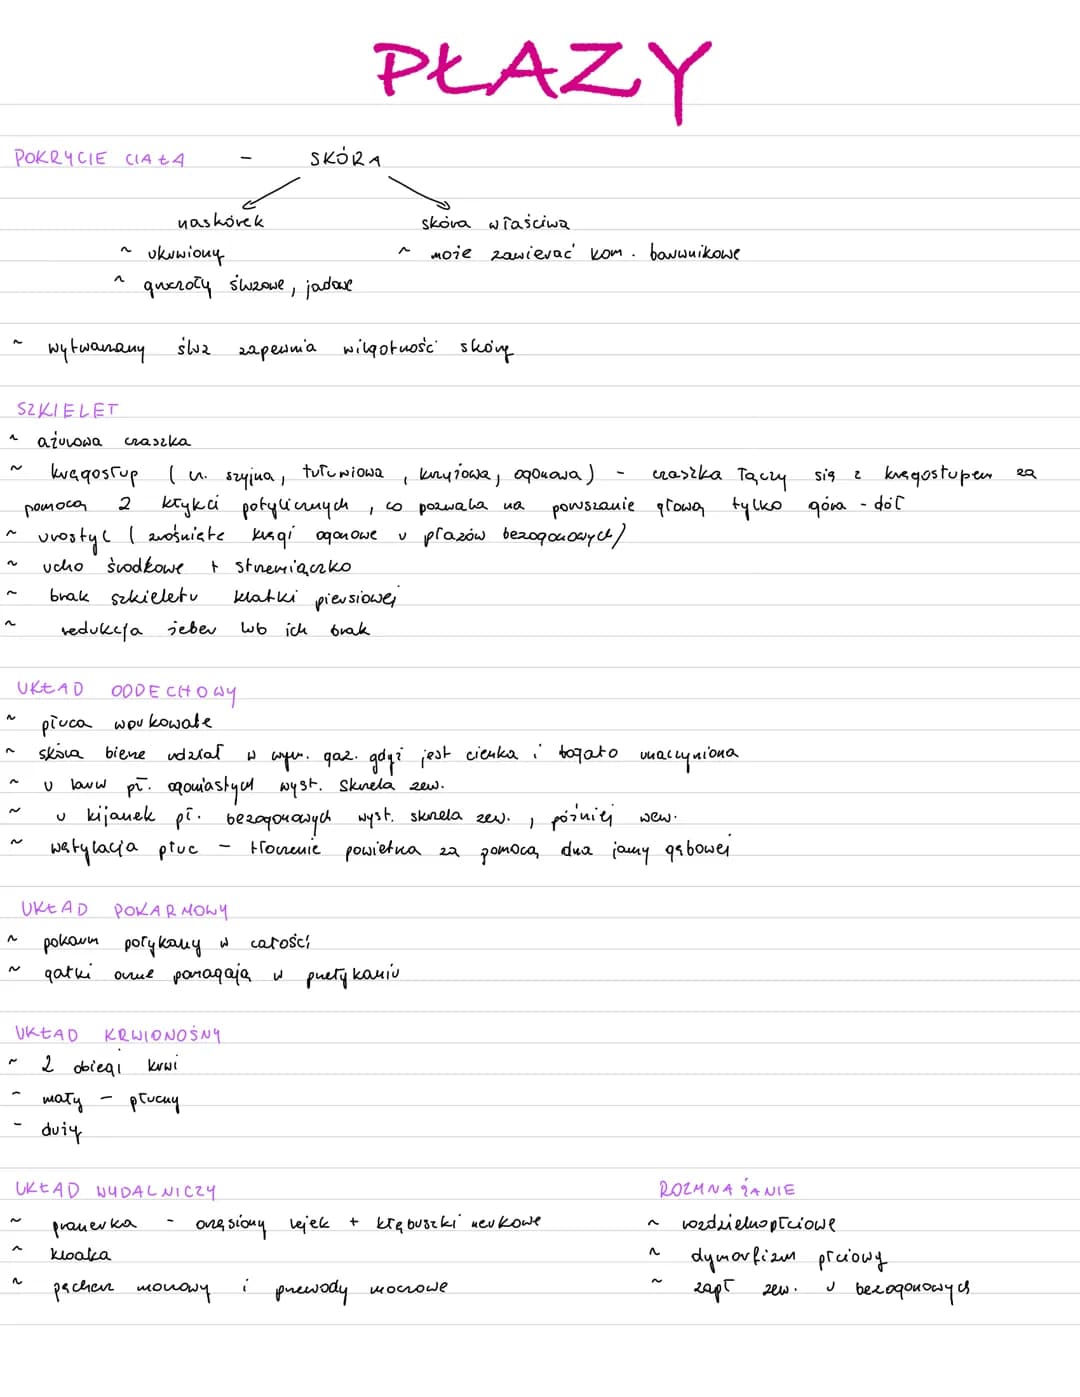 PŁAZY
POKRYCIE CIAŁA - SKÓRA
naskórek skóra właściwa
~ ~ może zawierać kom. barwnikowe
~ gruczoły śluzowe, jadowe
~ wytwarzany śluz zapewnia wilgotność skóry
SZKIELET
~ ażurowa czaszka
~ kręgosłup ( n. szyjna, tułowiowa, krzyżowa, ogonowa) - czaszka łączy się z kręgosłupem za
pomocą 2 kłykci potylicznych, co pozwala na poruszanie głową tylko góra - dół
~ urostyl ( zrośnięte kręgi ogonowe u płazów bezogonowych)
~ ucho środkowe + strzemiączko
~ brak szkieletu klatki piersiowej
~ redukcja żeber lub ich brak
UKŁAD ODDECHOWY
~ płuca workowate
~ skóra bierze udział w wym. gaz. gdyż jest cienka i bogato unaczyniona
~ u larw pł. ogoniastych wyst. skrzela zew.
~ u kijanek pł. bezogonowych wyst. skrzela zew., później wew.
~ wetylacja płuc - tłoczenie powietrza za pomocą dna jamy gębowej
UKŁAD POKARMOWY
~ pokarm połykany w całości
~ gałki oczne pomagają w przełykaniu
UKŁAD KRWIONOŚNY
~ 2 obiegi krwi
- mały - płucny
- duży
UKŁAD WYDALNICZY ROZMNAŻANIE
~ pranerka - orzęsiony lejek + kłębuszki nerkowe ~ rozdzielnopłciowe
~ kloaka ~ dymorfizm płciowy
~ pęcherz moczowy i przewody moczowe ~ zapł zew. u bezogonowych